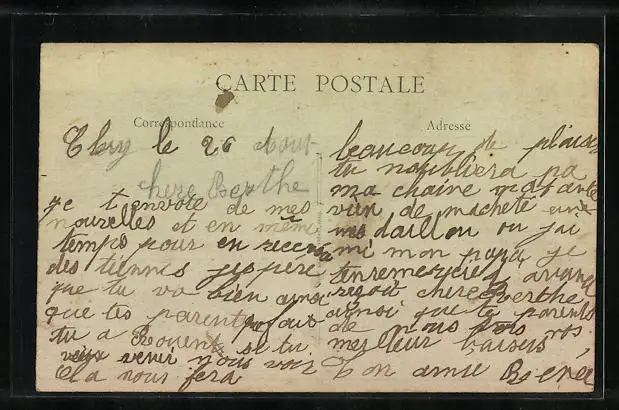 CARTE POSTALE
Correspondance
Adresse
le 26 Aout
chere Berthe
je t'envoie de mes
nouvelles et en même
temps pour en recevoir
des tiennes j'espère
que tu va bien ainsi
que tes parents
tu a Rouen si tu
veux venir nous voir
Ela nous fera
beaucoup de plaisir
tu noubliera pa
ma chaine
vien de macheté un
medaillon ou jai
mi mon papa je
ten remercie d avance
reçoit chere Berthe
ainsi que tes parents
de nous tous nos
meilleur baisers
Ton amie